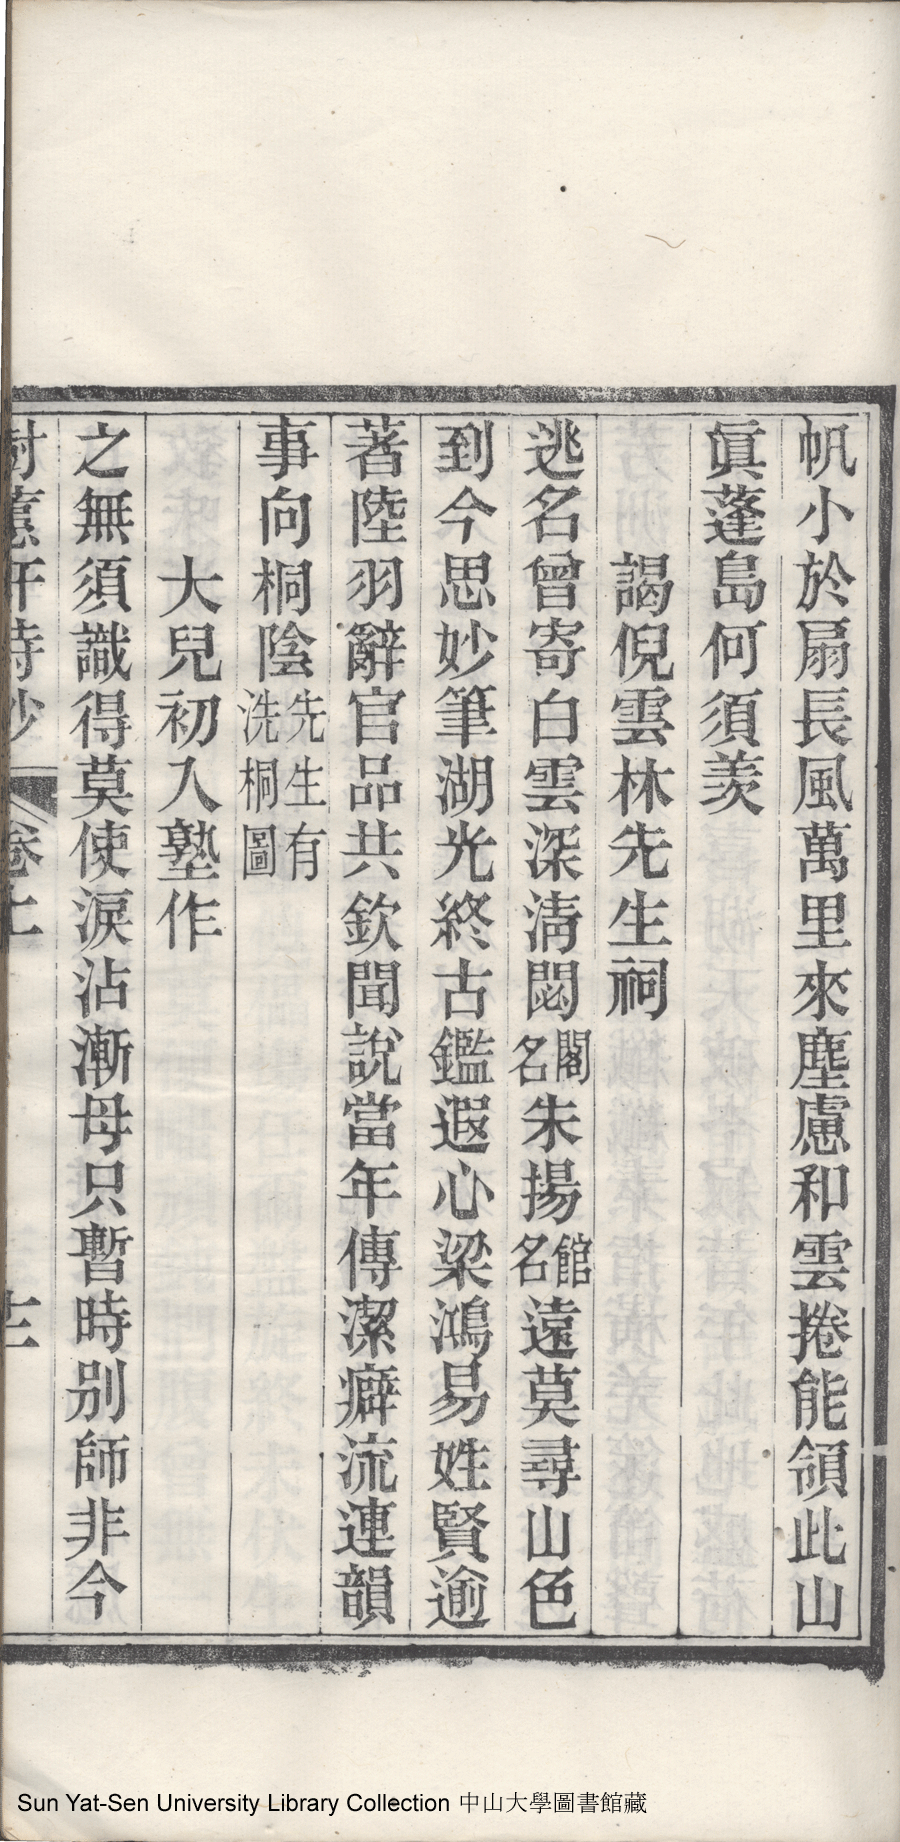 帆小於扇長風萬里來塵慮和雲捲能領此山
眞蓬島何須羨
謁倪雲林先生祠
逃名曾寄白雲深淸閟閣名朱揚館名遠莫尋山色
到今思妙筆湖光終古鑑遐心梁鴻易姓賢逾
著陸羽辭官品共欽聞說當年傳潔癖流連韻
事向桐陰先生有洗桐圖
大兒初入塾作
之無須識得莫使淚沾漸母只暫時別師非今
卷上
Sun Yat-Sen University Library Collection 中山大學圖書館藏